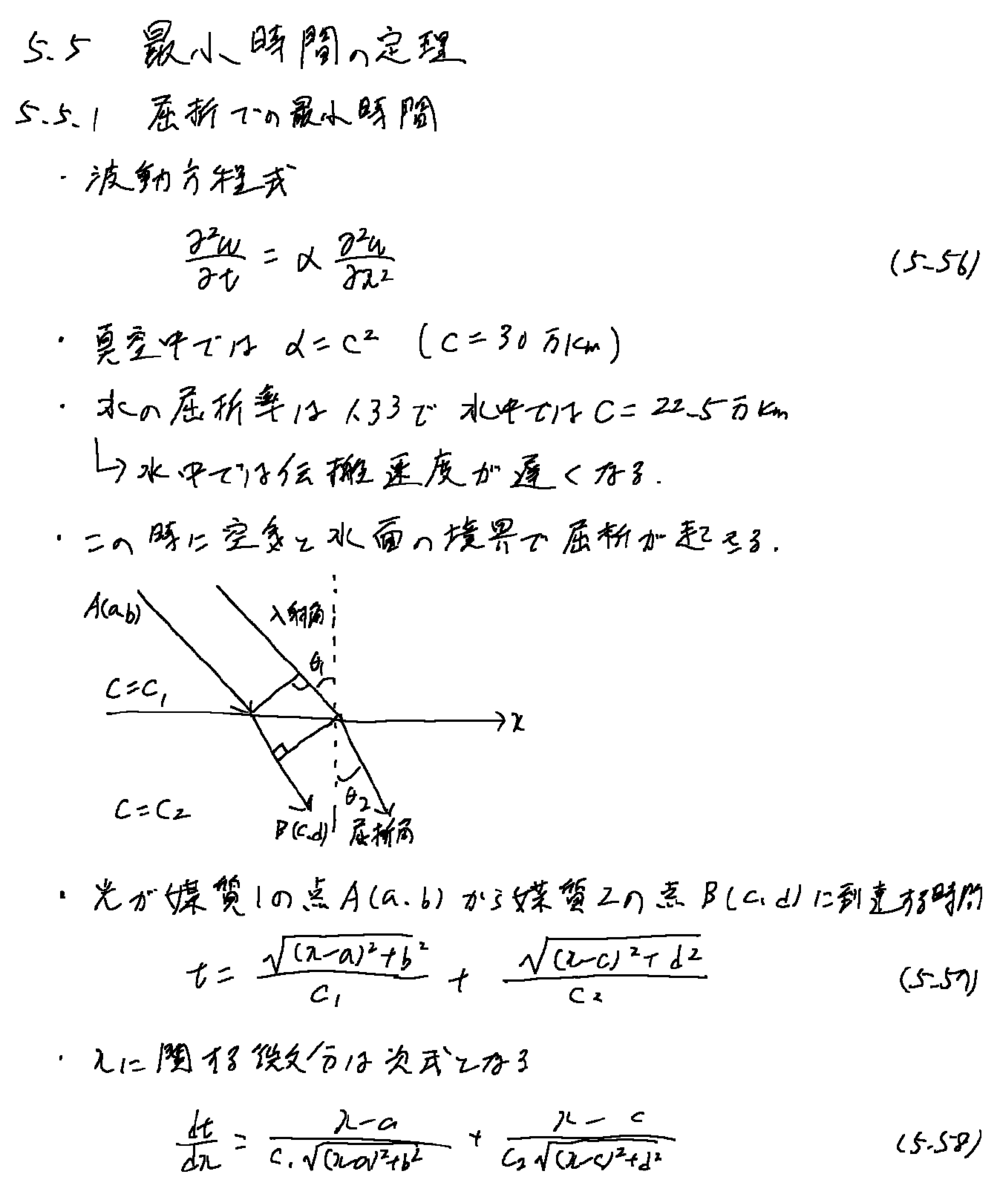 5.5 最小時間の定理
5.5.1 屈折での最小時間
・波動方程式
∂²u/∂t = α ∂²u/∂x² (5-56)
・真空中では α=c² (c=30万km)
・水の屈折率は1.33で水中ではc=22.5万km
↳水中では伝搬速度が遅くなる.
・この時に空気と水面の境界で屈折が起きる.
A(a,b) 入射角
θ₁
C=C₁
x
C=C₂
θ₂
B(c,d) 屈折角
・光が媒質1の点A(a.b)から媒質2の点B(c,d)に到達する時間
t = √((x-a)²+b²)/c₁ + √((x-c)²+d²)/c₂ (5-57)
・xに関する微分は次式となる
dt/dx = (x-a)/(c₁√((x-a)²+b²)) + (x-c)/(c₂√((x-c)²+d²)) (5-58)